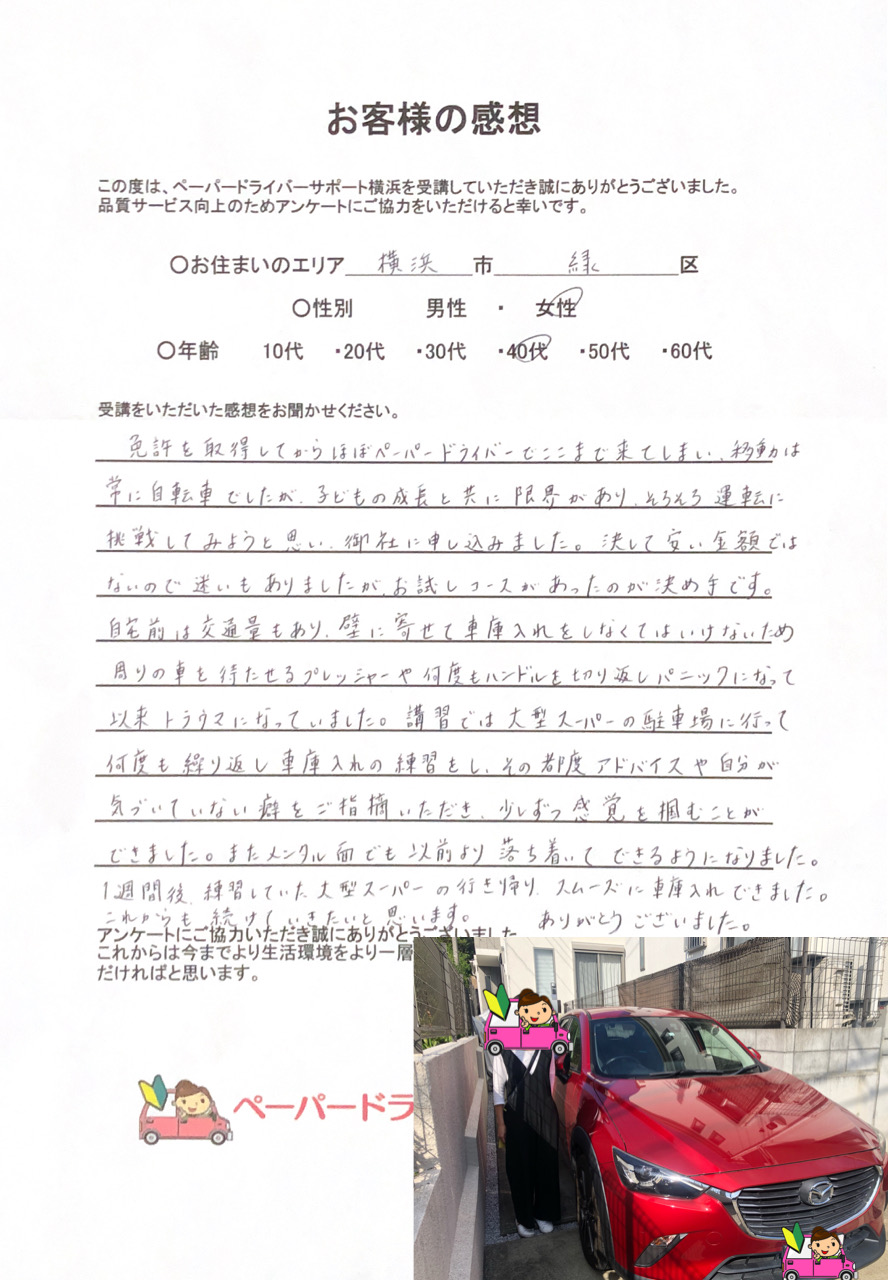 お客様の感想
この度は、ペーパードライバーサポート横浜を受講していただき誠にありがとうございました。
品質サービス向上のためアンケートにご協力をいただけると幸いです。
〇お住まいのエリア 横浜 市 緑 区
〇性別 男性 ・ 女性
〇年齢 10代 ・20代 ・30代 ・40代 ・50代 ・60代
受講をいただいた感想をお聞かせください。
免許を取得してからほぼペーパードライバーでここまで来てしまい、移動は
常に自転車でしたが、子どもの成長と共に限界があり、そろそろ運転に
挑戦してみようと思い、御社に申し込みました。決して安い金額では
ないので迷いもありましたが、お試しコースがあったのが決め手です。
自宅前は交通量もあり、壁に寄せて車庫入れをしなくてはいけないため
周りの車を待たせるプレッシャーや何度もハンドルを切り返しパニックになって
以来トラウマになっていました。講習では大型スーパーの駐車場に行って
何度も繰り返し車庫入れの練習をし、その都度アドバイスや自分が
気づいていない癖をご指摘いただき、少しずつ感覚を掴むことが
できました。またメンタル面でも以前より落ち着いてできるようになりました。
1週間後、練習していた大型スーパーの行き帰り、スムーズに車庫入れできました。
これからも続けていきたいと思います。 ありがとうございました。
アンケートにご協力いただき誠にありがとうございました
これからは今までより生活環境をより一層
だければと思います。
ペーパードラ